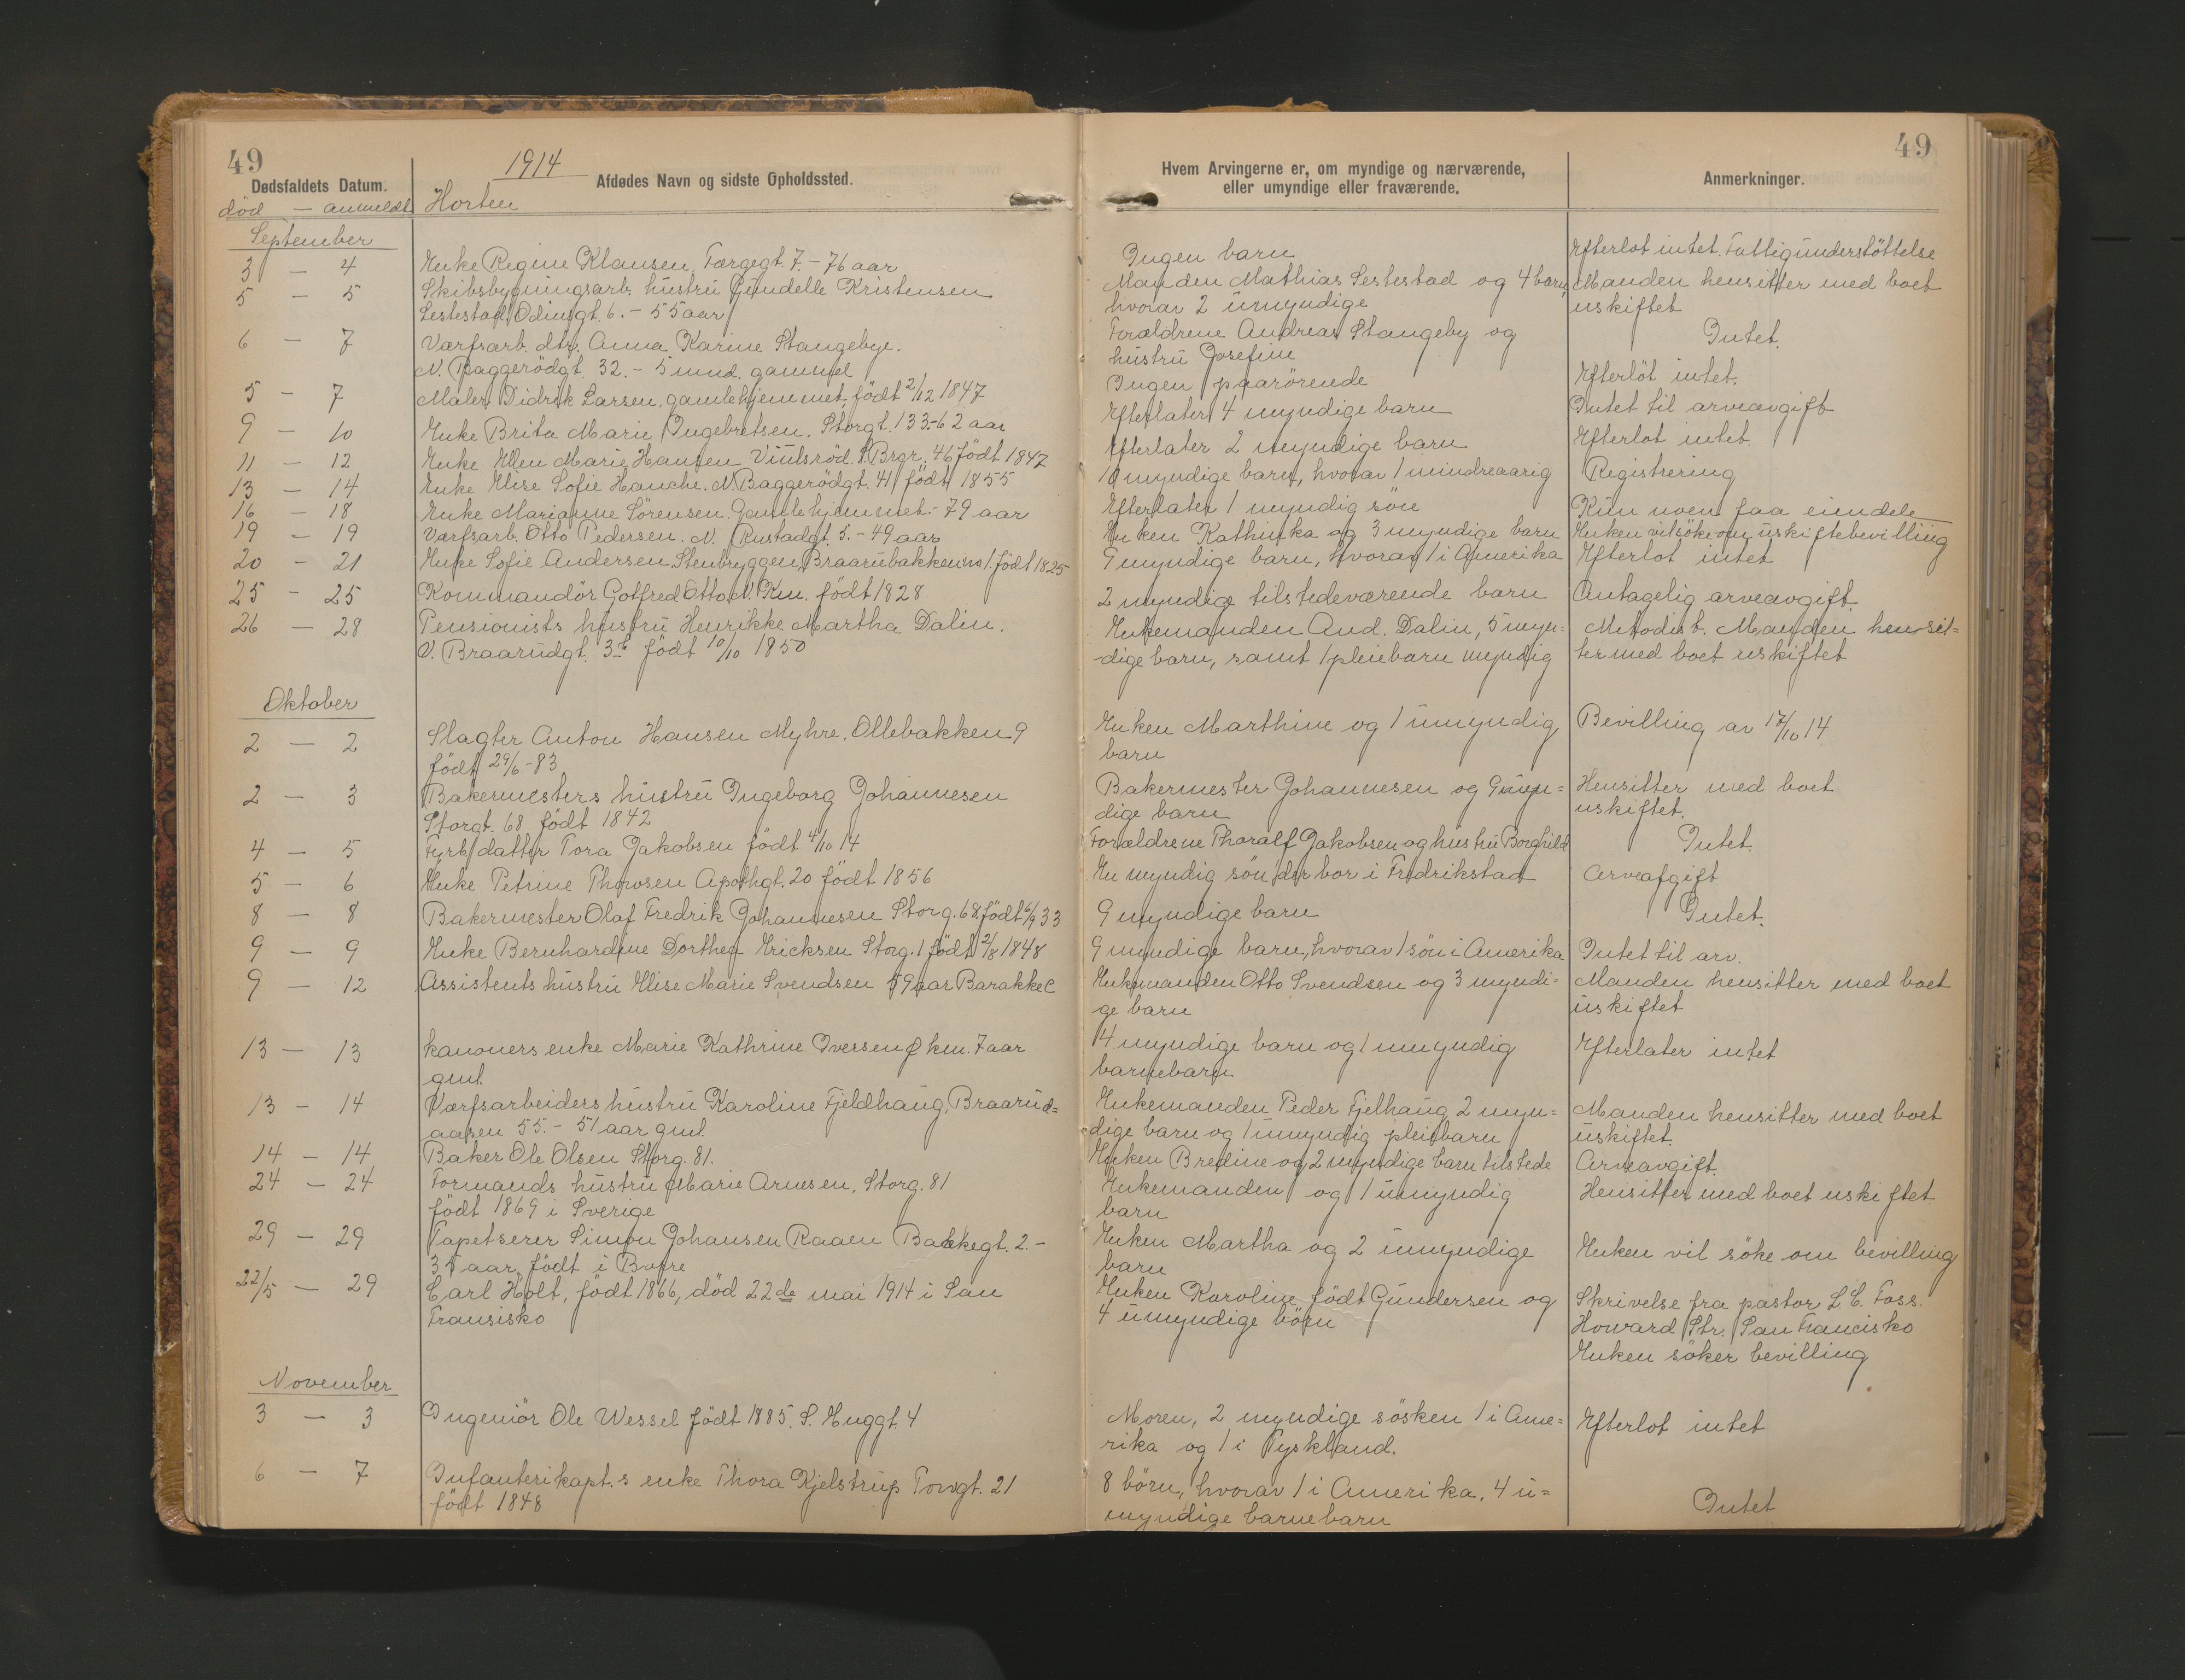 49
1914
Dødsfaldets Datum.
Afdødes Navn og sidste Opholdssted.
død — anmeldt
Horten
September
3 — 4 Enke Regine Klausen, Færgegt. 7. – 76 aar
5 — 5 Skibsbygningsarb. hustru Gundelle Kristensen
Sestestad, Odinsgt. 6. – 55 aar
6 — 7 Værfsarb. dtr. Anna Karine Stangebye.
N. Baggerödgt. 32. – 5 mnd. gammel
5 — 7 Maler Didrik Larsen, gamlehjemmet, födt 2/12 1847
9 — 10 Enke Brita Marie Ingebretsen. Storgt. 133. – 62 aar
11 — 12 Enke Ellen Marie Hansen Viulsröd. S. Brgr. 46 födt 1847
13 — 14 Enke Elise Sofie Hanche. N. Baggerödgt. 41 födt 1855
16 — 18 Enke Marianne Sörensen. Gamlehjemmet. – 79 aar
19 — 19 Værfsarb. Otto Pedersen. N. Rustadgt. 5. – 49 aar
20 — 21 Enke Sofie Andersen Stenbryggen, Braarubakken no 1. födt 1825
25 — 25 Kommandör Gotfred Otto N. Km. födt 1828
26 — 28 Pensionists hustru Henrikke Martha Dalin.
V. Braarudgt. 3b födt 10/10 1850
Oktober
2 — 2 Slagter Anton Hansen Myhre. Ollebakken 9
födt 29/6 – 83
2 — 3 Bakermesters hustru Ingeborg Johannesen
Storgt. 68 födt 1842
4 — 5 Fyrb. datter Tora Jakobsen födt 4/10 14
5 — 6 Enke Petrine Thowsen Apothgt. 20 födt 1856
8 — 8 Bakermester Olaf Fredrik Johannesen Storg. 68. födt 6/9 33
9 — 9 Enke Bernhardine Dorthea Ericksen Storg. 1 födt 2/8 1848
9 — 12 Assistents hustru Elise Marie Svendsen 59 aar Barakke C
13 — 13 kanoners enke Marie Kathrine Iversen Ø km. 7 aar
gml.
13 — 14 Værfsarbeiders hustru Karoline Fjeldhaug, Braarud=
aasen 55. – 51 aar gml.
14 — 14 Baker Ole Olsen Storg. 81.
24 — 24 Formands hustru Marie Arnesen, Storg. 81
födt 1869 i Sverige
29 — 29 Tapetserer Simon Johansen Raaen Bakkegt. 2. –
aar, födt i
22/5 — 29 Carl Holt, födt 1866, död 22de mai 1914 i San
Fransisko
November
3 — 3 Ingeniör Ole Wessel födt 1885. S. Huggt. 4
6 — 7 Infanterikapt.s enke Thora Kjelstrup Torvgt. 21
födt 1848
49
Hvem Arvingerne er, om myndige og nærværende,
eller umyndige eller fraværende.
Anmerkninger.
Ingen barn
Efterlot intet. Fattigunderstöttelse
Manden Mathias Sestestad og 4 barn,
Manden hensitter med boet
hvorav 2 umyndige
uskiftet
Forældrene Andreas Stangeby og
Intet.
hustru Josefine
Ingen paarörende
Efterlöt intet.
Efterlater 4 myndige barn
Intet til arveavgift
Efterlater 2 myndige barn
Efterlot intet
10 myndige barn, hvorav 1 mindreaarig
Registrering
Efterlater 1 myndig sön
Kun noen faa eiendele
Enken Kathinka og 3 myndige barn
Enken vil söke om uskiftebevilling
9 myndige barn, hvorav 1 i Amerika
Efterlot intet
2 myndige tilstedeværende barn
Antagelig arveavgift.
Enkemanden And. Dalin, 5 myn=
Metodist. Manden hensit=
dige barn, samt 1 pleiebarn myndig
ter med boet uskiftet
Enken Marthine og 1 umyndig
Bevilling av 17/10 14
barn
Bakermester Johannesen og 9 myn=
Hensitter med boet
dige barn
uskiftet.
Forældrene Thoralf Jakobsen og hustru Borghild
Intet.
En myndig sön der bor i Fredrikstad
Arveafgift
9 myndige barn
Intet.
9 myndige barn, hvorav 1 sön i Amerika
Intet til arv.
Enkemanden Otto Svendsen og 3 myndi=
Manden hensitter med boet
ge barn
uskiftet
4 myndige barn og 1 umyndig
Efterlater intet
barnebarn
Enkemanden Peder Fjelhaug 2 myn=
Manden hensitter med boet
dige barn og 1 umyndig pleiebarn
uskiftet.
Enken Bredine og 2 myndige barn tilstede
Arveavgift.
Enkemanden og 1 umyndig
Hensitter med boet uskiftet
barn
Enken Martha og 2 umyndige
Enken vil söke om bevilling
barn
Enken Karoline födt Gundersen og
Skrivelse fra pastor L. C. Foss.
4 umyndige börn
Howard Str. San Francisko
Enken söker bevilling
Moren, 2 myndige sösken 1 i Ame=
Efterlot intet
rika og 1 i Tyskland.
8 börn, hvorav 1 i Amerika, 4 u=
Intet
myndige barnebarn